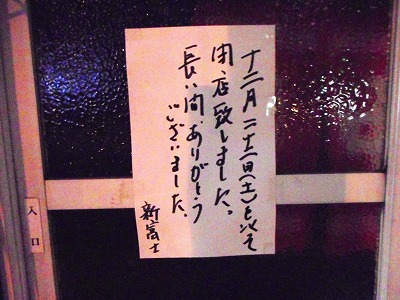 十二月二十一日(土)をもって
閉店致しました。
長い間、ありがとう
ございました。
新富士
入口